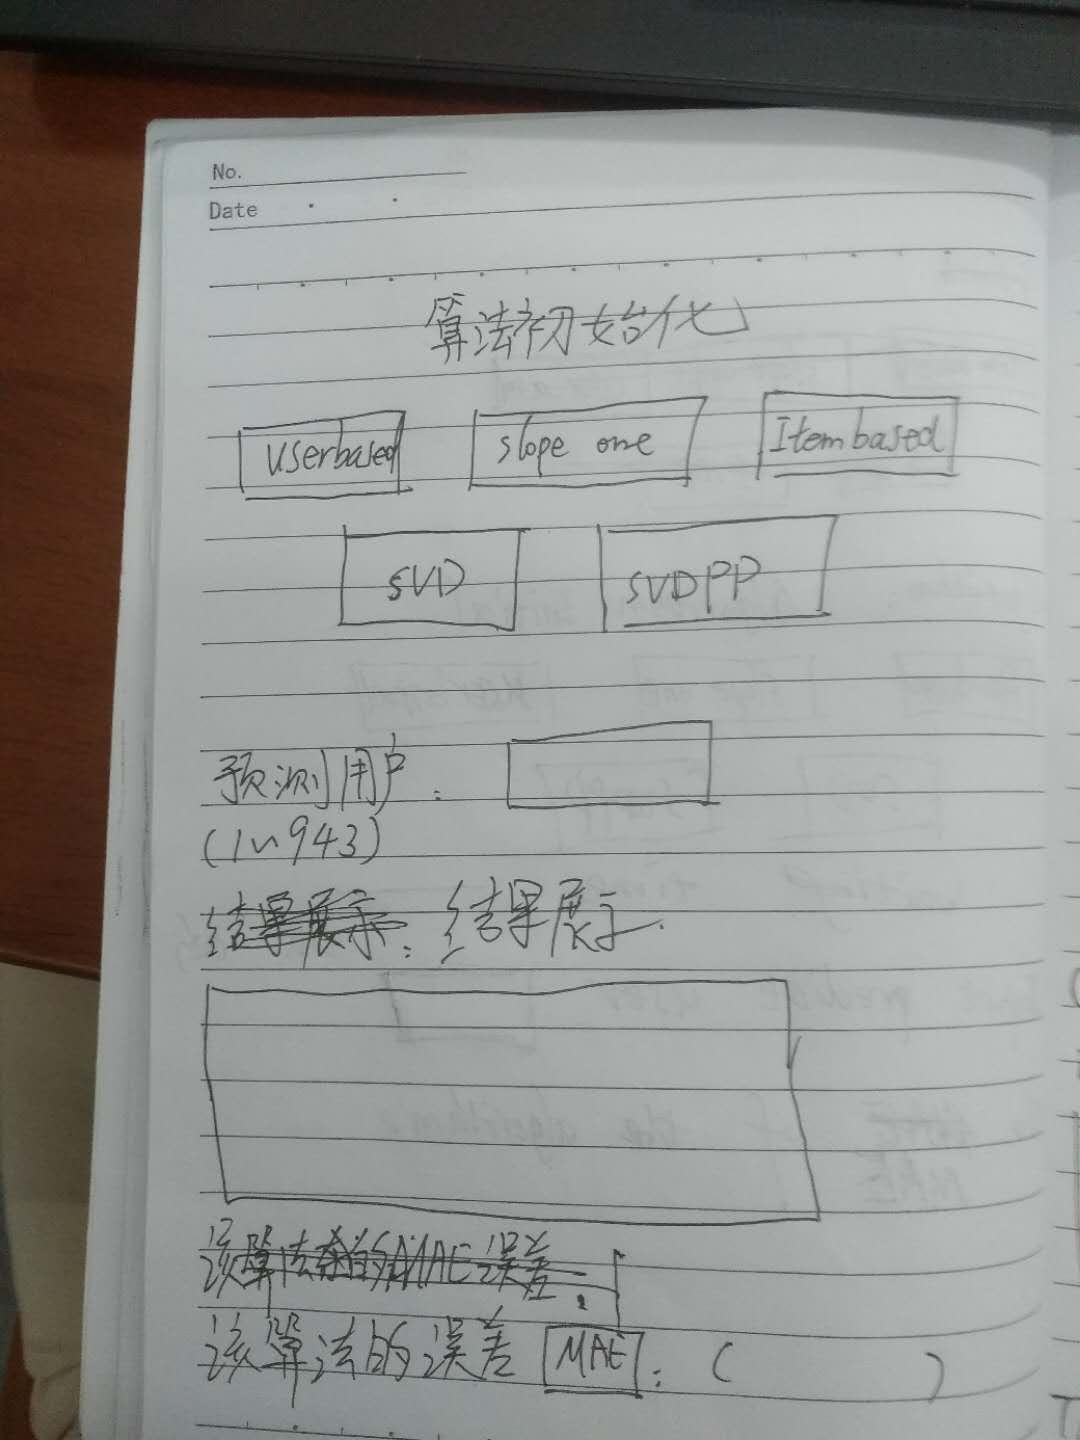 No.
Date
算法初始化
Userbased slope one Itembased
SVD SVDPP
预测用户：
(1~943)
结果展示：结果展示.
该算法的MAE误差：
该算法的误差 MAE：（ ）